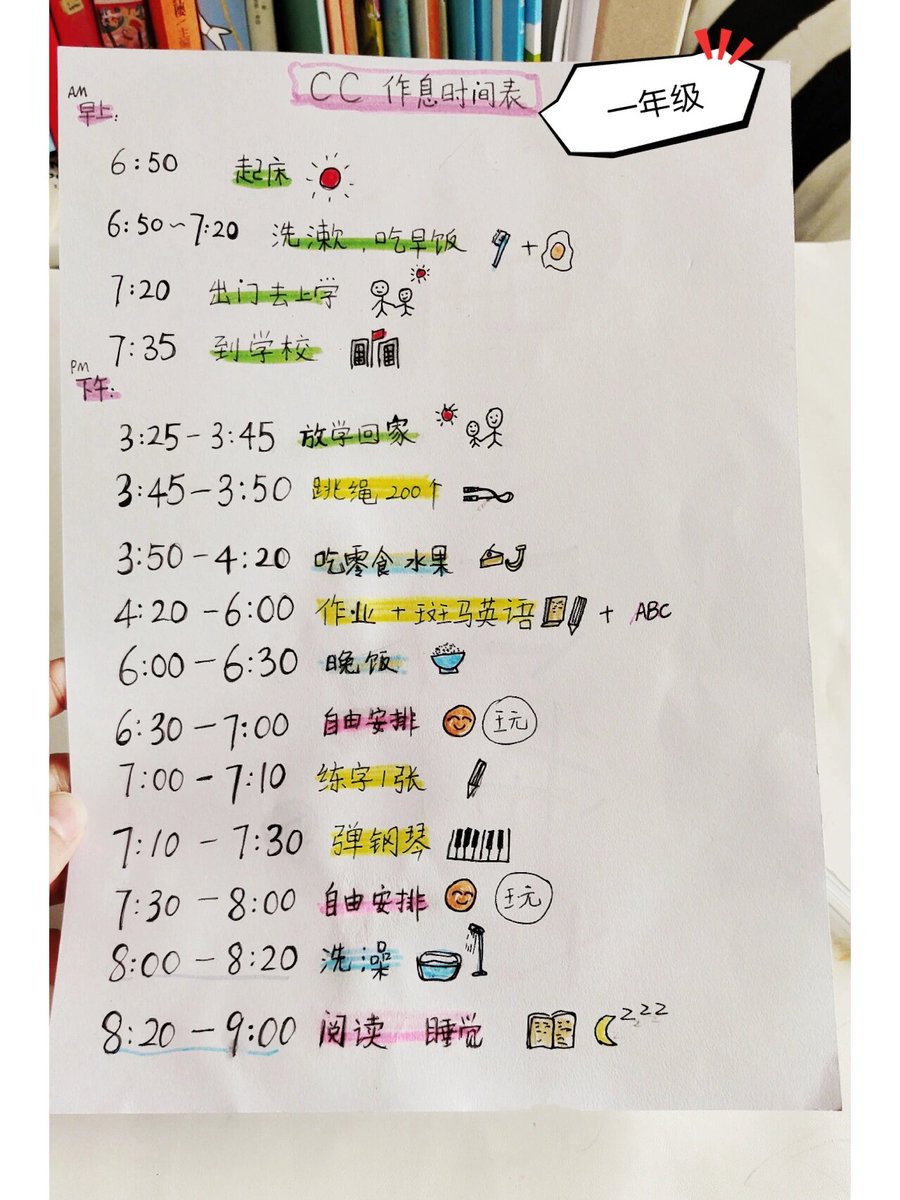 CC 作息时间表
一年级
AM
早上:
6:50 起床
6:50~7:20 洗漱,吃早饭 +
7:20 出门去上学
7:35 到学校
PM
下午:
3:25-3:45 放学回家
3:45-3:50 跳绳200个
3:50-4:20 吃零食 水果
4:20-6:00 作业+斑马英语 + ABC
6:00-6:30 晚饭
6:30-7:00 自由安排 玩
7:00-7:10 练字1张
7:10-7:30 弹钢琴
7:30-8:00 自由安排 玩
8:00-8:20 洗澡
8:20-9:00 阅读 睡觉 zzzz